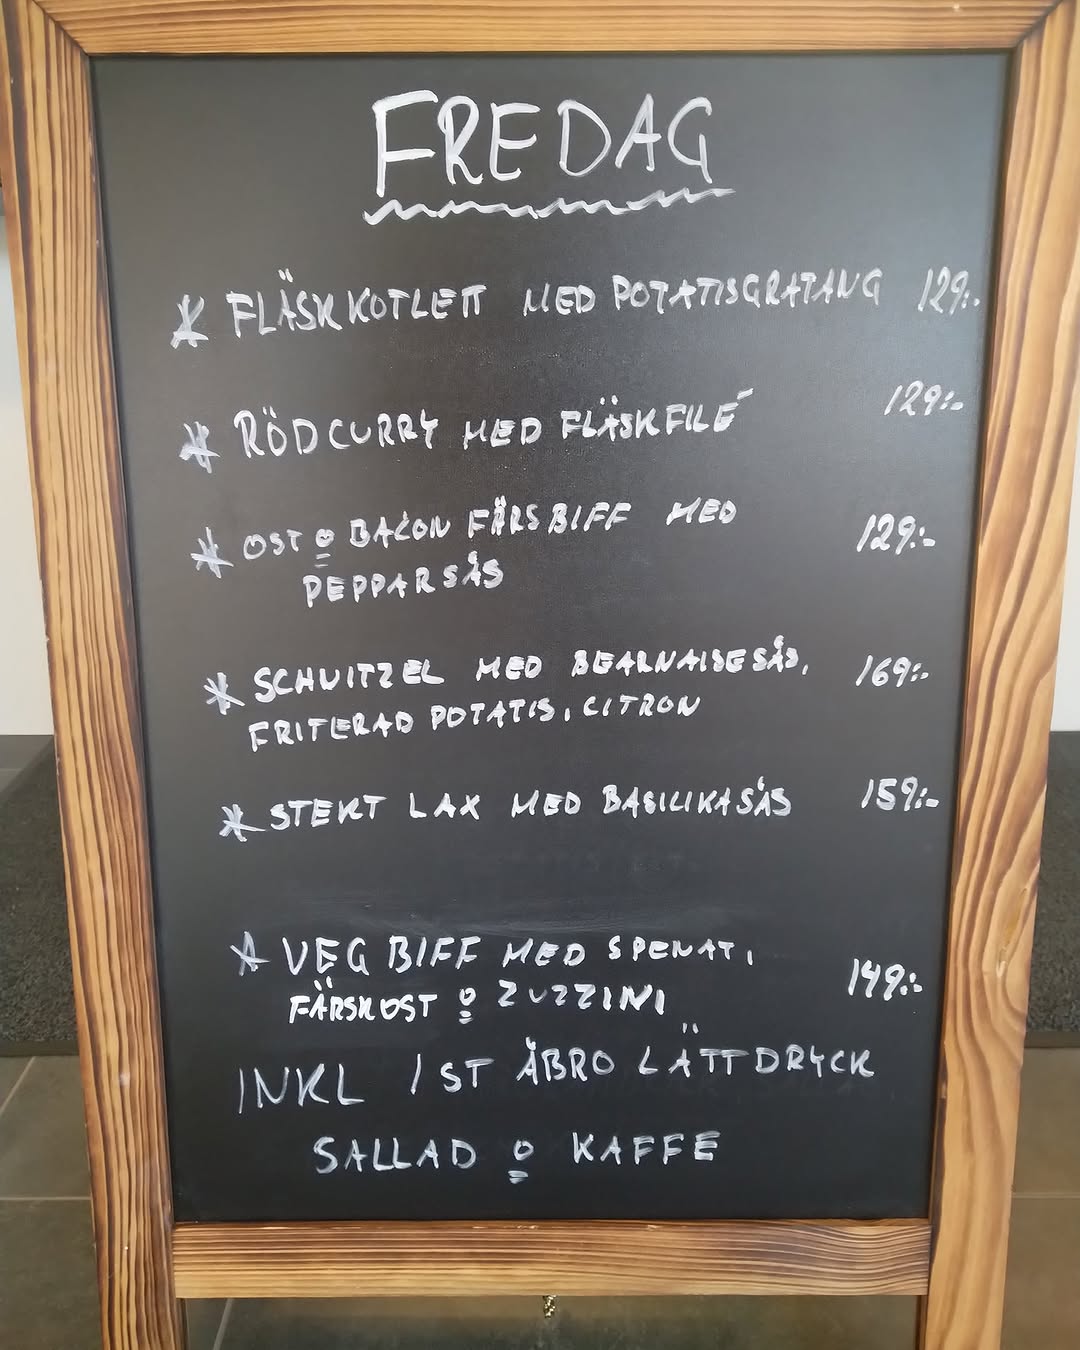 FREDAG
* FLÄSKKOTLETT MED POTATISGRATANG 129:-
* RÖDCURRY MED FLÄSKFILÉ 129:-
* OST o BACON FÄRSBIFF MED 129:-
PEPPARSÅS
* SCHNITZEL MED BEARNAISESÅS, 169:-
FRITERAD POTATIS, CITRON
* STEKT LAX MED BASILIKASÅS 159:-
* VEG BIFF MED SPENAT, 149:-
FÄRSKOST o ZUZZINI
INKL 1 ST ÅBRO LÄTTDRYCK
SALLAD o KAFFE